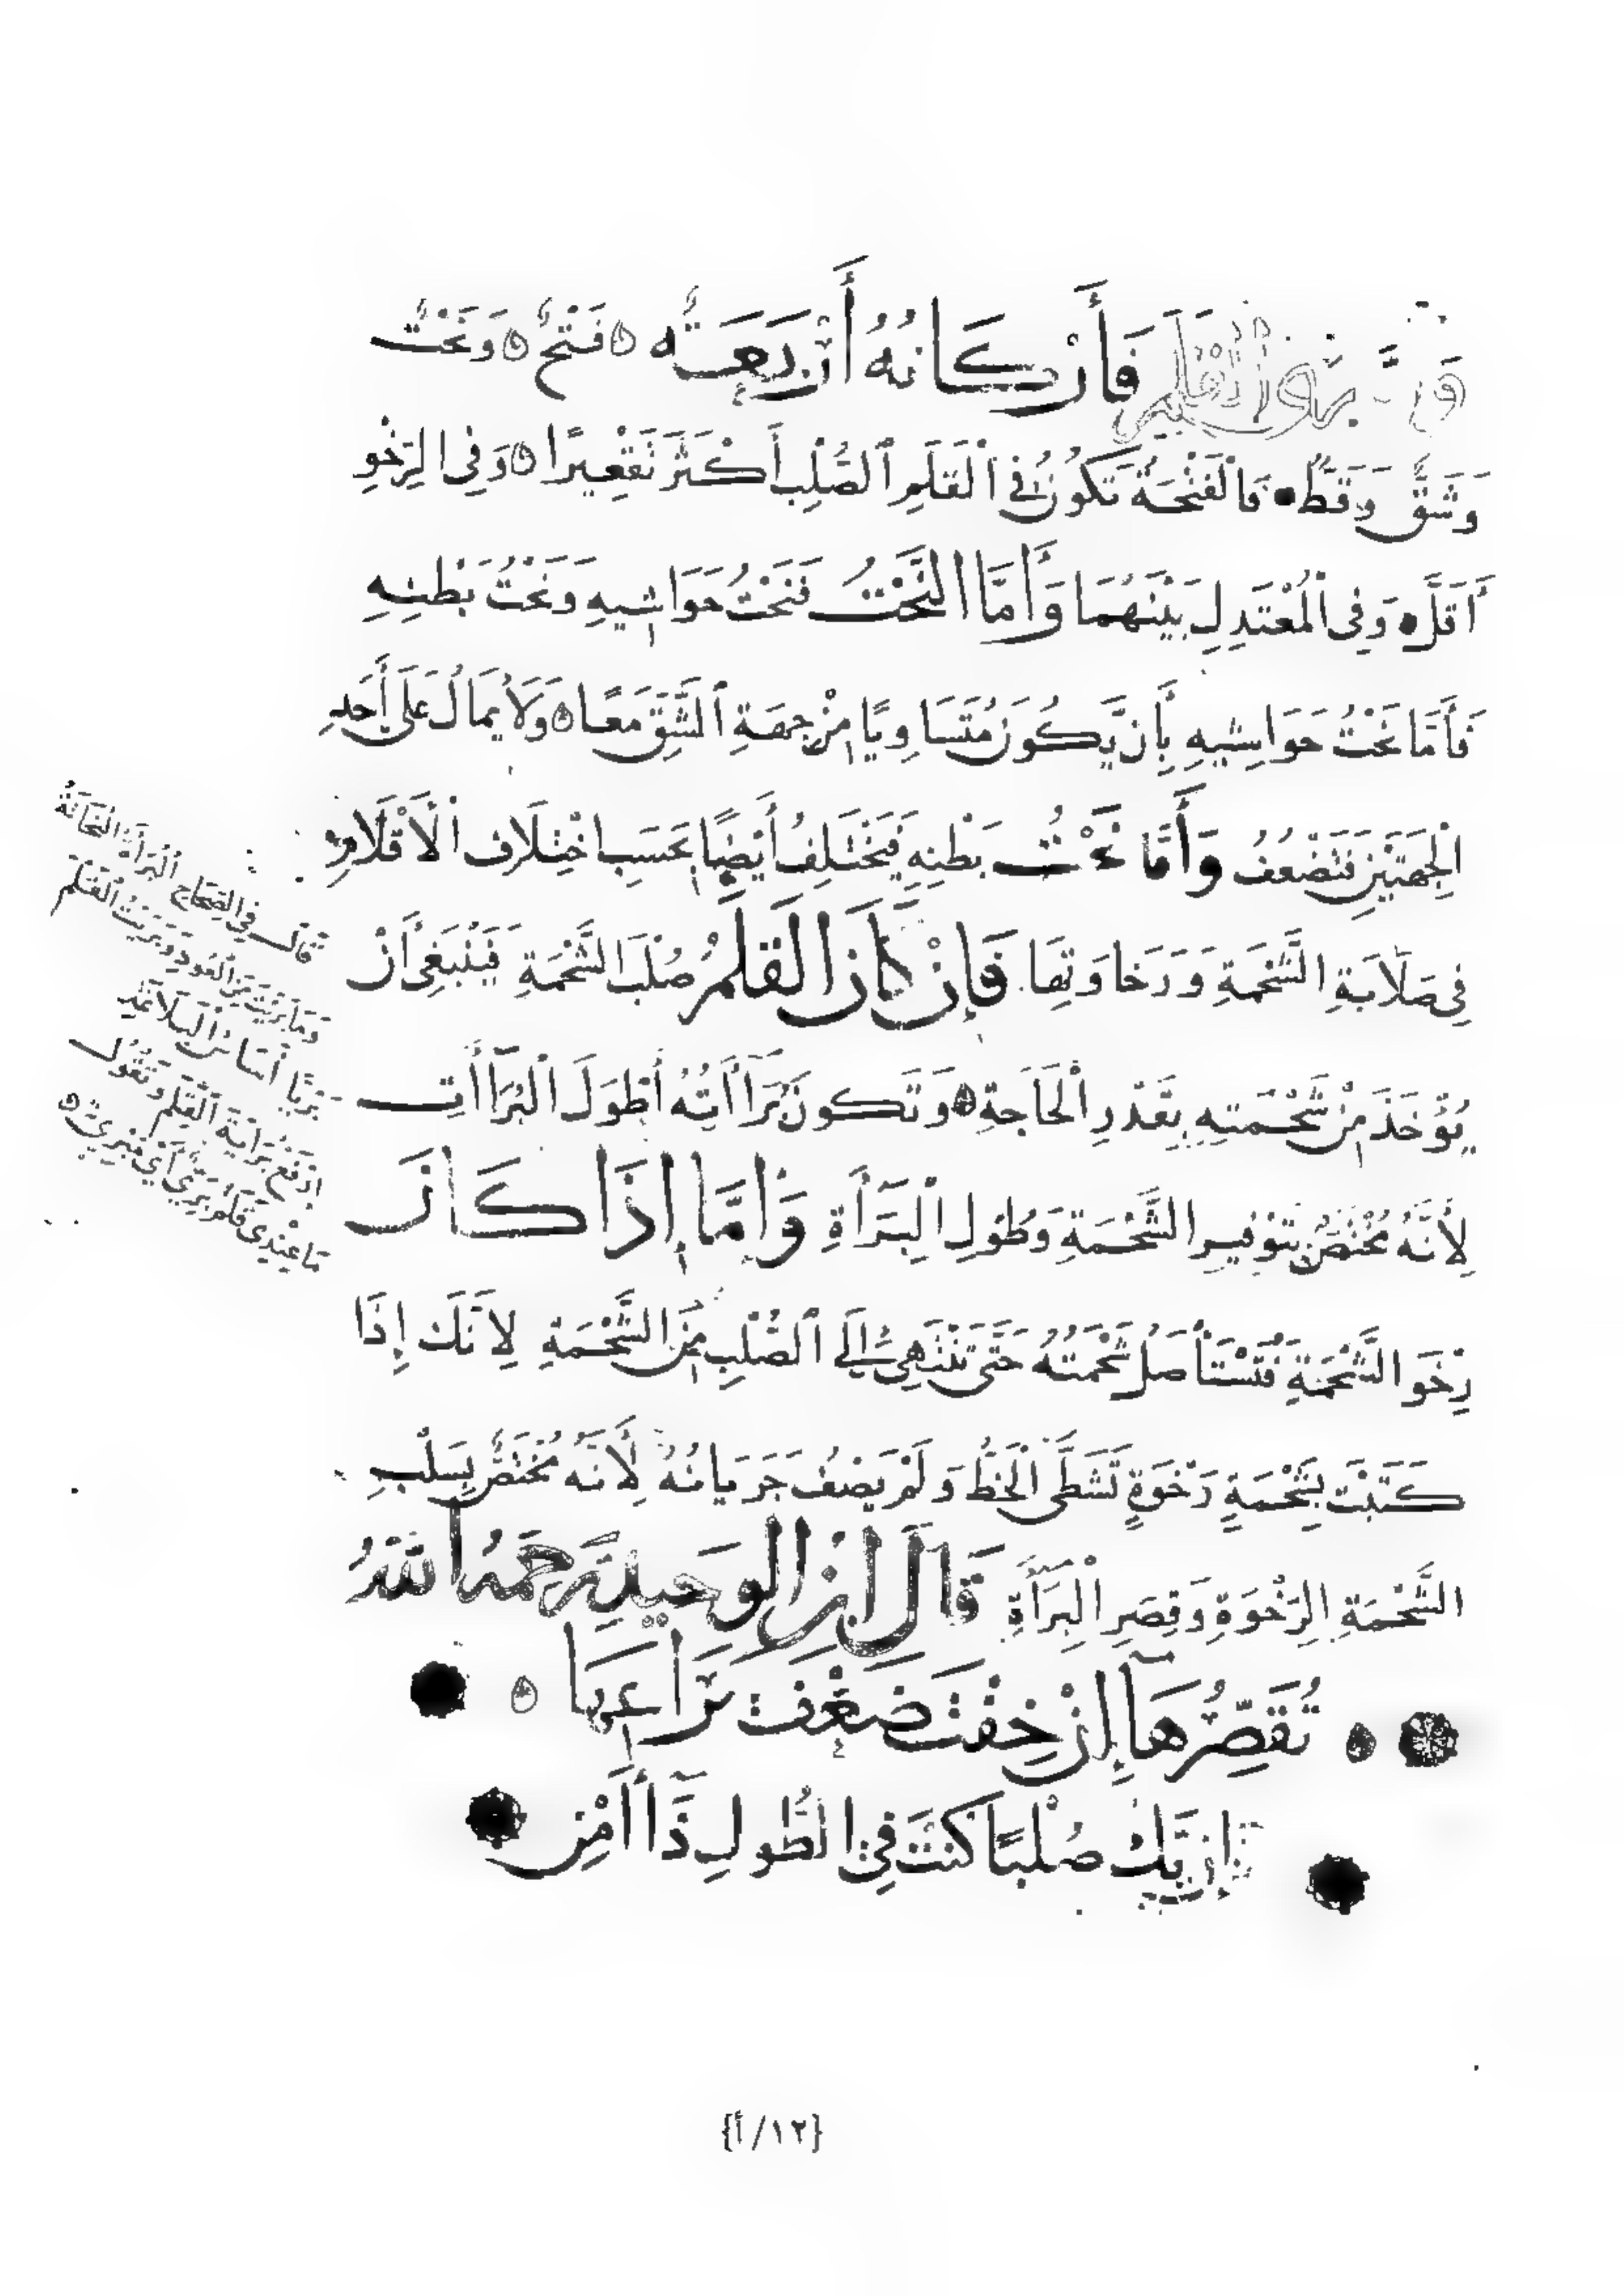 القلم فَأَرْكَانُهُ أَرْبَعَةٌ فَتْحٌ وَنَحْتٌ
وَشَقٌّ وَقَطٌّ فَالْفَتْحَةُ تَكُونُ فِي الْقَلَمِ الصُّلْبِ أَكْثَرَ تَقْعِيرًا وَفِي الرِّخْوِ
أَقَلَّ وَفِي الْمُعْتَدِلِ بَيْنَهُمَا وَأَمَّا النَّحْتُ فَنَحْتُ حَوَاشِيهِ وَنَحْتُ بَطْنِهِ
فَأَمَّا نَحْتُ حَوَاشِيهِ بِأَنْ يَكُونَ مُتَسَاوِيًا مِنْ جِهَةِ الشِّقِّ مَعًا وَلَا يُمَالُ عَلَى أَحَدِ
الْجِهَتَيْنِ فَتَضْعُفُ وَأَمَّا نَحْتُ بَطْنِهِ فَيَخْتَلِفُ أَيْضًا بِحَسَبِ اخْتِلَافِ الْأَقْلَامِ
فِي صَلَابَةِ الشَّحْمَةِ وَرَخَاوَتِهَا فَإِنْ كَانَ الْقَلَمُ صُلْبَ الشَّحْمَةِ فَيَنْبَغِي أَنْ
يُؤْخَذَ مِنْ شَحْمَتِهِ بِقَدْرِ الْحَاجَةِ وَتَكُونَ بُرَاأَتُهُ أَطْوَلَ الْبُرَاأَاتِ
لِأَنَّهُ مُخْتَصٌّ بِتَوْفِيرِ الشَّحْمَةِ وَطُولِ الْبَرَأَةِ وَإِمَّا إِذَا كَانَ
رِخْوَ الشَّحْمَةِ فَتَسْتَأْصِلُ شَحْمَتُهُ حَتَّى تَنْتَهِيَ إِلَى الصُّلْبِ مِنَ الشَّحْمَةِ لِأَنَّكَ إِذَا
كَتَبْتَ بِشَحْمَةٍ رَخْوَةٍ تَشَظَّى الْخَطُّ وَلَمْ يَصْفُ جَرَيَانُهُ لِأَنَّهُ مُخْتَصٌّ بِسَلْبِ
الشَّحْمَةِ الرِّخْوَةِ وَقِصَرِ الْبَرَأَةِ قَالَ ابْنُ الْوَحِيدِ رَحِمَهُ اللَّهُ
تُقَصِّرُهَا إِنْ خِفْتَ ضَعْفَ يَرَاعِهَا
وَإِنْ يَكُ صُلْبًا كُنْتَ فِي الطُّولِ ذَا أَمْنِ
قَالَ فِي الصِّحَاحِ الْبُرَأَةُ النُّحَاتَةُ
وَمَا بَرَيْتَ مِنَ الْعُودِ وَبَرَيْتُ الْقَلَمَ
بَرْيًا أَسَاسُ الْبَلَاغَةِ
ارْفَعْ بُرَايَةَ الْقَلَمِ وَتَقُولُ
مَا عِنْدِي قَلَمٌ بَرِيٌّ أَيْ مَبْرِيٌّ
{١٢/أ}